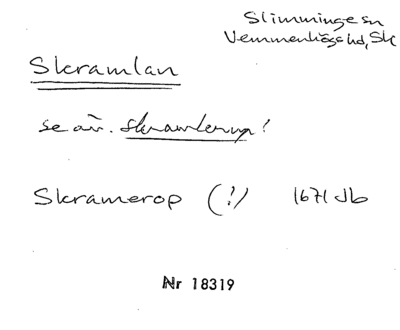 Slimminge sn
Vemmenhögs hd, Sk
Skramlan
se äv. skramlerup!
Skramerop (!) 1671 Jb
Nr 18319